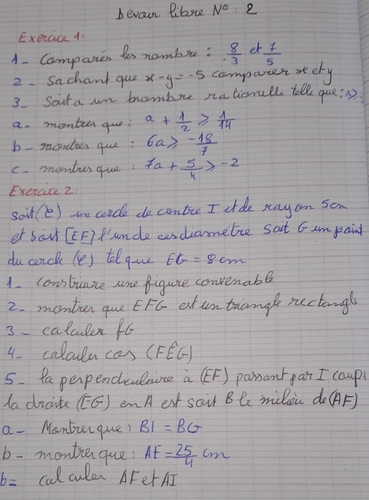 Devoir libre N°: 2
Exercice 1:
1- Comparer les nombre : 8/3 et 7/5
2 - Sachant que x-y=-5 comparer x et y
3 - Soit a un nombre rationnelle telle que: a≥
a- montres que: a + 1/2 ≥ 1/14
b - montres que : 6a ≥ -18/7
c - montres que : 7a + 5/4 ≥ -2
Exercice 2:
soit (C) un cercle de centre I et de rayon 5cm
et soit [EF] l'un de ces diamètre Soit G un point
du cercle (C) tel que EG = 8cm
1 - construire une figure convenable
2 - montrer que EFG est un triangle rectangle
3 - calculer FG
4 - calculer cos (FÊG)
5 - la perpendiculaire à (EF) passant par I coupe
la droite (EG) en A et soit B le milieu de (AF)
a - Montrer que: BI = BG
b - montrer que: AF = 25/4 cm
b= calculer AF et AI